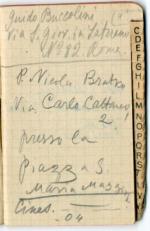 Guido Buccolini
Via S. Giov. in Laterano
Nº 82 Roma.
P. Nicola
Via Carlo Cattaneo
2
presso la
Piazza S.
Maria Magg
Cines.
04
C
D
E
F
G
H
I
L
M
N
O
P
Q
R
S
T
U
V